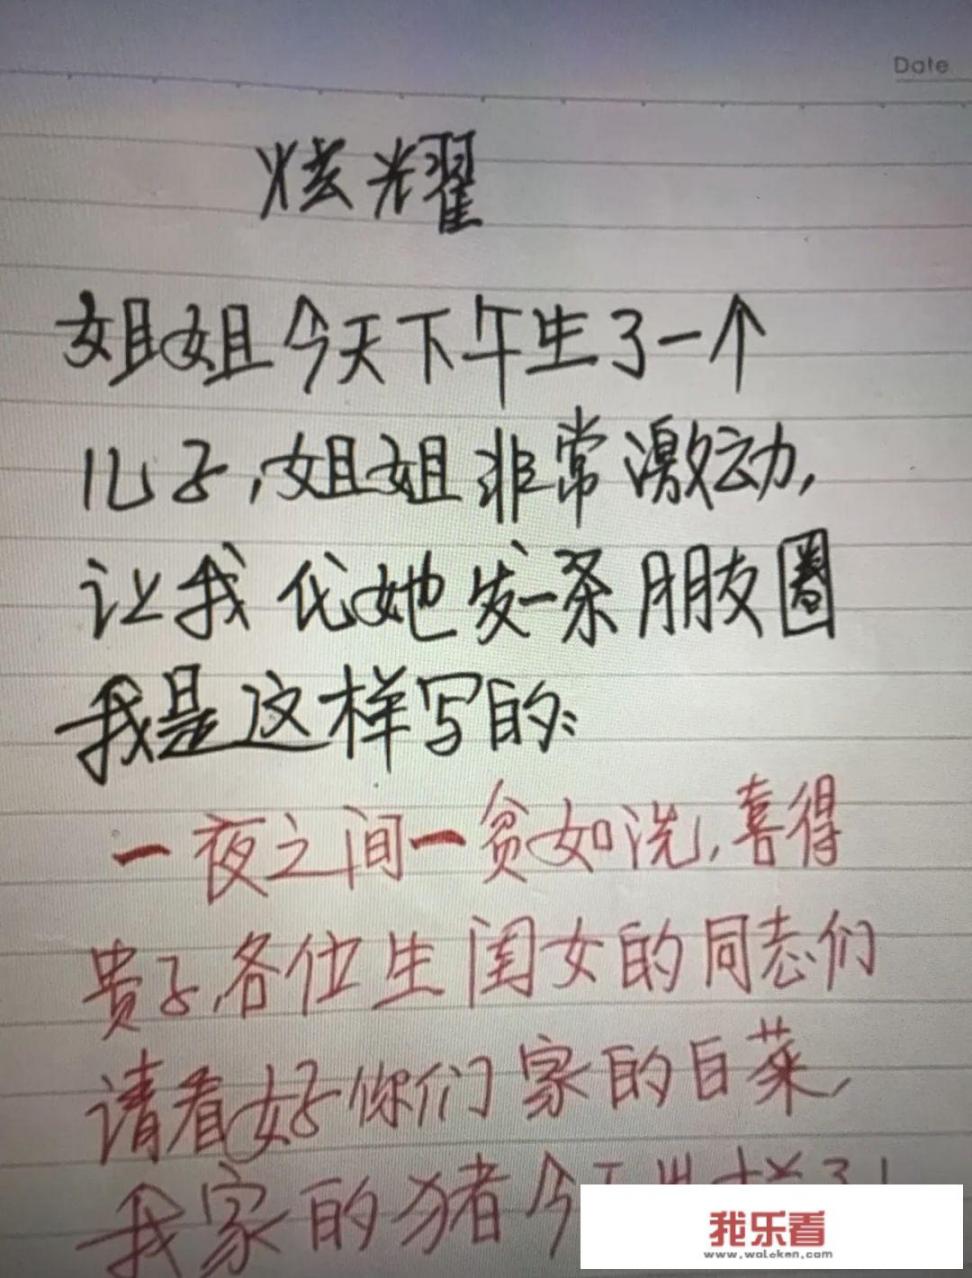 Date
炫耀
姐姐今天下午生了一个
儿子,姐姐非常激动,
让我代她发一条朋友圈
我是这样写的:
一夜之间一贫如洗,喜得
贵子,各位生闺女的同志们
请看好你们家的白菜,
我家的猪今
我乐看
www.woleken.com